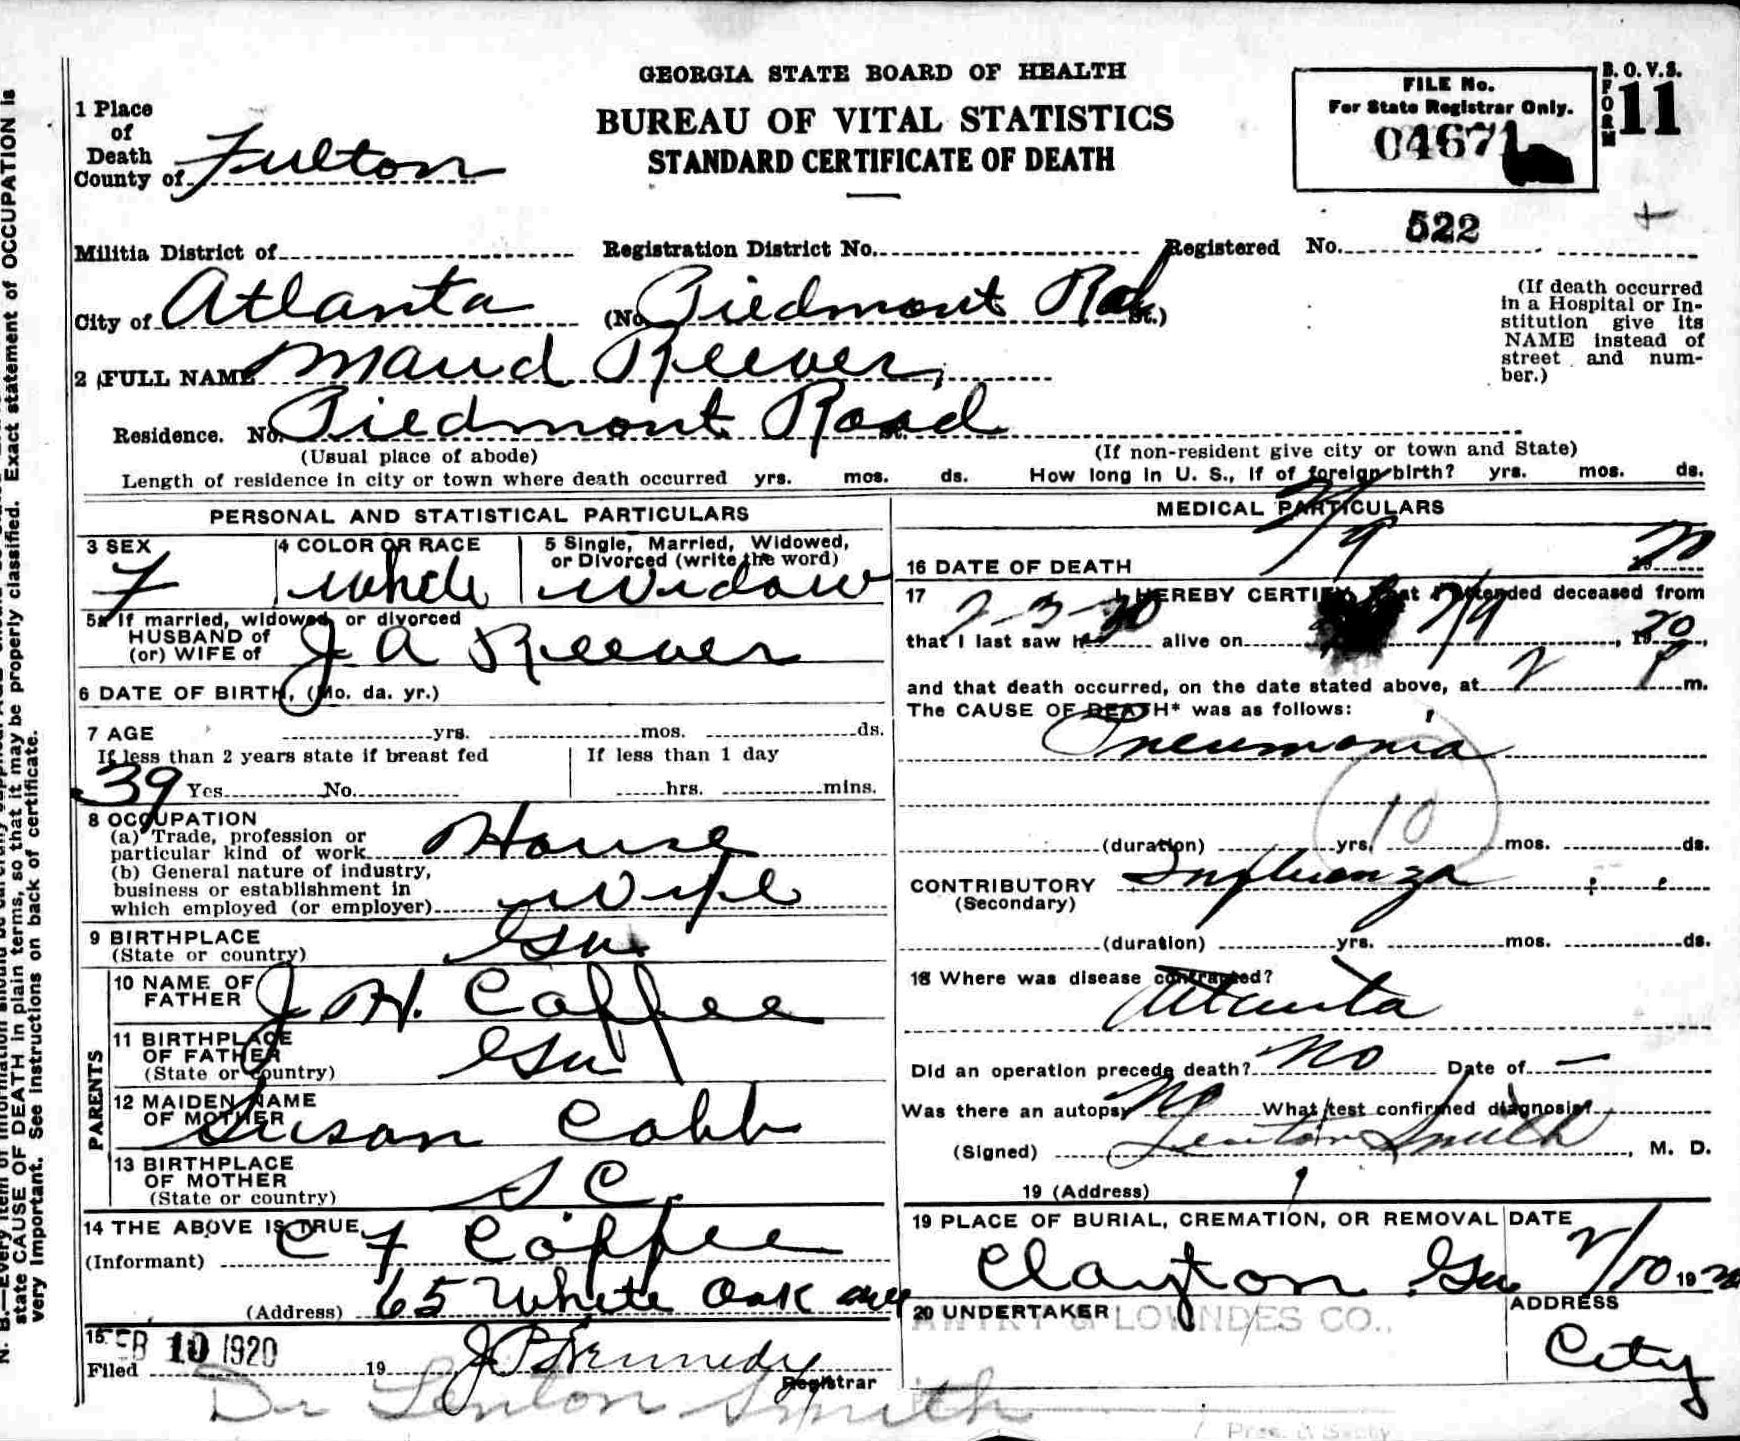 GEORGIA STATE BOARD OF HEALTH
BUREAU OF VITAL STATISTICS
STANDARD CERTIFICATE OF DEATH
FILE No.
For State Registrar Only.
04671
B. O. V. S.
FORM 11
1 Place of Death
County of Fulton
Militia District of
Registration District No.
Registered No. 522
City of Atlanta (No. Piedmont Rd St.)
(If death occurred in a Hospital or Institution give its NAME instead of street and number.)
2 FULL NAME Maud Reever
Residence. No. Piedmont Road
(Usual place of abode)
(If non-resident give city or town and State)
Length of residence in city or town where death occurred yrs. mos. ds. How long in U. S., if of foreign birth? yrs. mos. ds.
PERSONAL AND STATISTICAL PARTICULARS
3 SEX F
4 COLOR OR RACE White
5 Single, Married, Widowed, or Divorced (write the word) Widow
5a If married, widowed, or divorced
HUSBAND of
(or) WIFE of J A Reever
6 DATE OF BIRTH, (Mo. da. yr.)
7 AGE yrs. mos. ds.
If less than 2 years state if breast fed
If less than 1 day
39 Yes No.
hrs. mins.
8 OCCUPATION
(a) Trade, profession or particular kind of work House
(b) General nature of industry, business or establishment in which employed (or employer) Wife
9 BIRTHPLACE
(State or country) Ga
PARENTS
10 NAME OF FATHER J H. Coffee
11 BIRTHPLACE OF FATHER
(State or country) Ga
12 MAIDEN NAME OF MOTHER Susan Cobb
13 BIRTHPLACE OF MOTHER
(State or country) S C.
14 THE ABOVE IS TRUE.
(Informant) C F Coffee
(Address) 65 White Oak ave
15 FEB 10 1920
Filed 19 J P Kennedy
Registrar
Dr Lenton Smith
MEDICAL PARTICULARS
16 DATE OF DEATH 2/9 1920
17 I HEREBY CERTIFY, that I attended deceased from 2-3-20 2/9
that I last saw h alive on , 1920,
and that death occurred, on the date stated above, at 2 P m.
The CAUSE OF DEATH* was as follows:
Pneumonia
10
(duration) yrs. mos. ds.
CONTRIBUTORY Influenza
(Secondary)
(duration) yrs. mos. ds.
18 Where was disease contracted?
Atlanta
Did an operation precede death? No Date of —
Was there an autopsy No What test confirmed diagnosis?
(Signed) Lenton Smith, M. D.
19 (Address)
19 PLACE OF BURIAL, CREMATION, OR REMOVAL
DATE
Clayton Ga
2/10 1920
20 UNDERTAKER
AWTRY & LOWNDES CO.,
ADDRESS
City
N. B.—Every item of information should be carefully
state CAUSE OF DEATH in plain terms, so that it may be properly classified. Exact statement of OCCUPATION is
very important. See instructions on back of certificate.